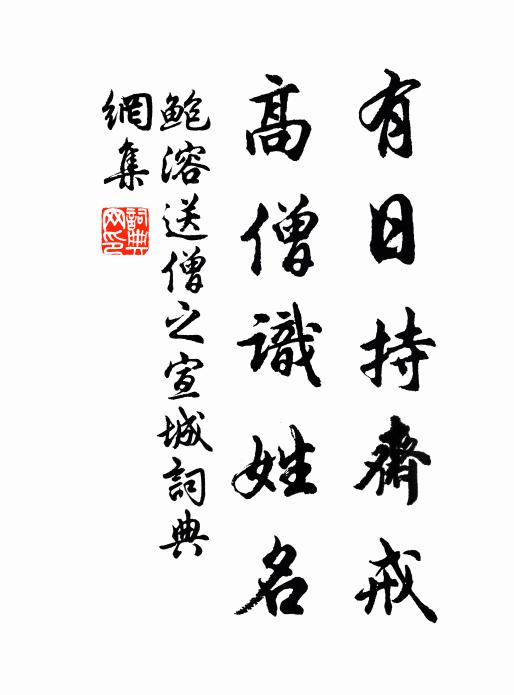 有日持齋戒
高僧識姓名
鮑溶送僧之宣城詞典
網集
詞典
网印